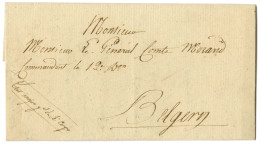 Monsieur
Monsieur le Général Comte Morand
Commandant la 12e Don
Belgern